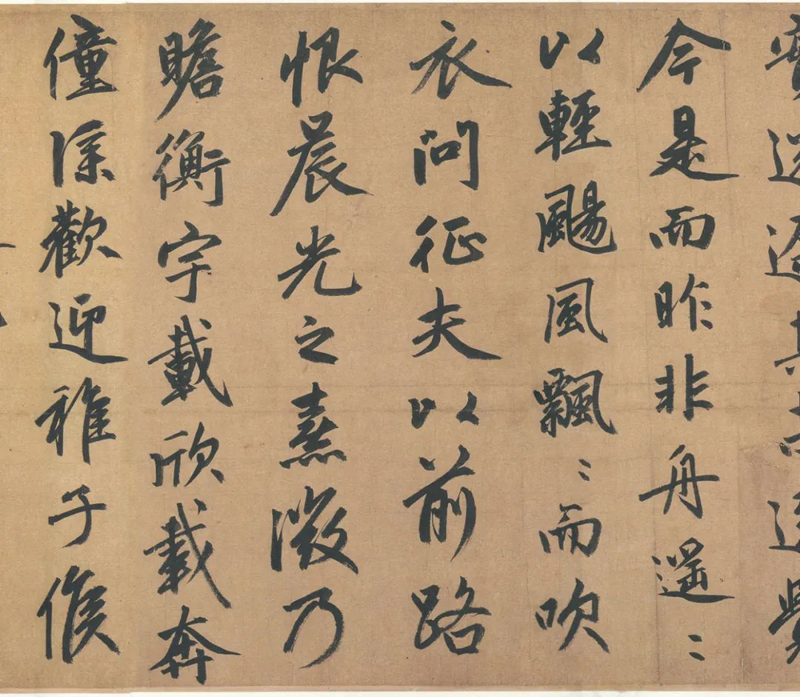 實迷途其未遠覺
今是而昨非舟遙〻
以輕颺風飄〻而吹
衣問征夫以前路
恨晨光之熹微乃
瞻衡宇載欣載奔
僮僕歡迎稚子候